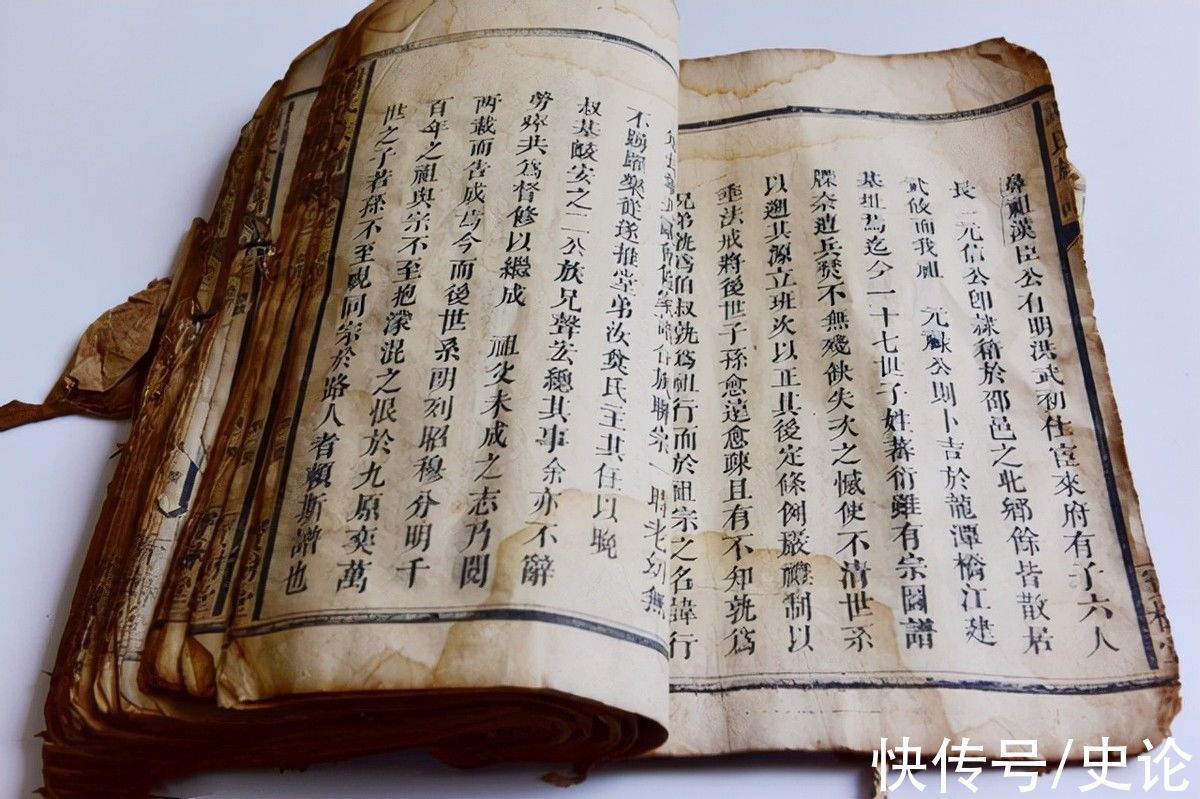 鼻祖漢臣公有明洪武初仕宦來府有子六人
長 元信公卽隸籍於邵邑之北鄉餘皆散居
貳攸而我祖 元 公則卜吉於龍潭橋江建
基址焉迄今一十七世子姓蕃衍雖有宗圖譜
牒奈遭兵燹不無殘缺失次之憾使不清世系
以遡其源立班次以正其後定條例嚴禮制以
垂法戒將後世子孫愈遠愈疎且有不知孰爲
兄弟孰爲伯叔孰爲祖行而於祖宗之名諱行
族聯宗一時老幼無
不踴躍樂從遂推堂弟汝 民主其任以晚
叔基 安之二公族兄聲宏總其事余亦不辭
勞瘁共爲督修以繼成 祖父未成之志乃閱
兩載而告成焉今而後世系明列昭穆分明千
百年之祖與宗不至抱濛混之恨於九原奕萬
世之子若孫不至視同宗於路人者賴斯譜也
快传号/史论